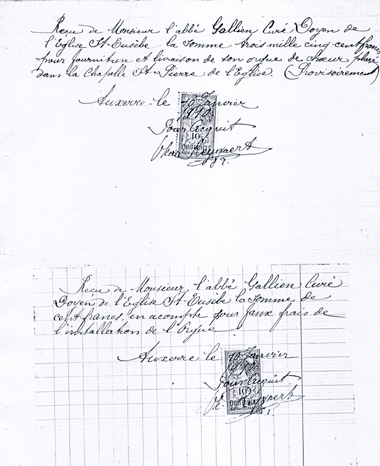 Reçu de Monsieur l'abbé Gallien Curé Doyen de
l'Eglise St-Eusèbe la somme trois mille cinq cent francs
pour fourniture et livraison de son orgue de chœur placé
dans la Chapelle St-Pierre de l'Eglise. (Provisoirement)
Auxerre le 10 Janvier
1910
Pour Acquit
10c
Reçu de Monsieur l'abbé Gallien Curé
Doyen de l'Eglise St-Eusèbe la somme de
cent francs, en acompte pour faux frais de
l'installation de l'Orgue
Auxerre le 10 Janvier
1910
Pour Acquit
10c